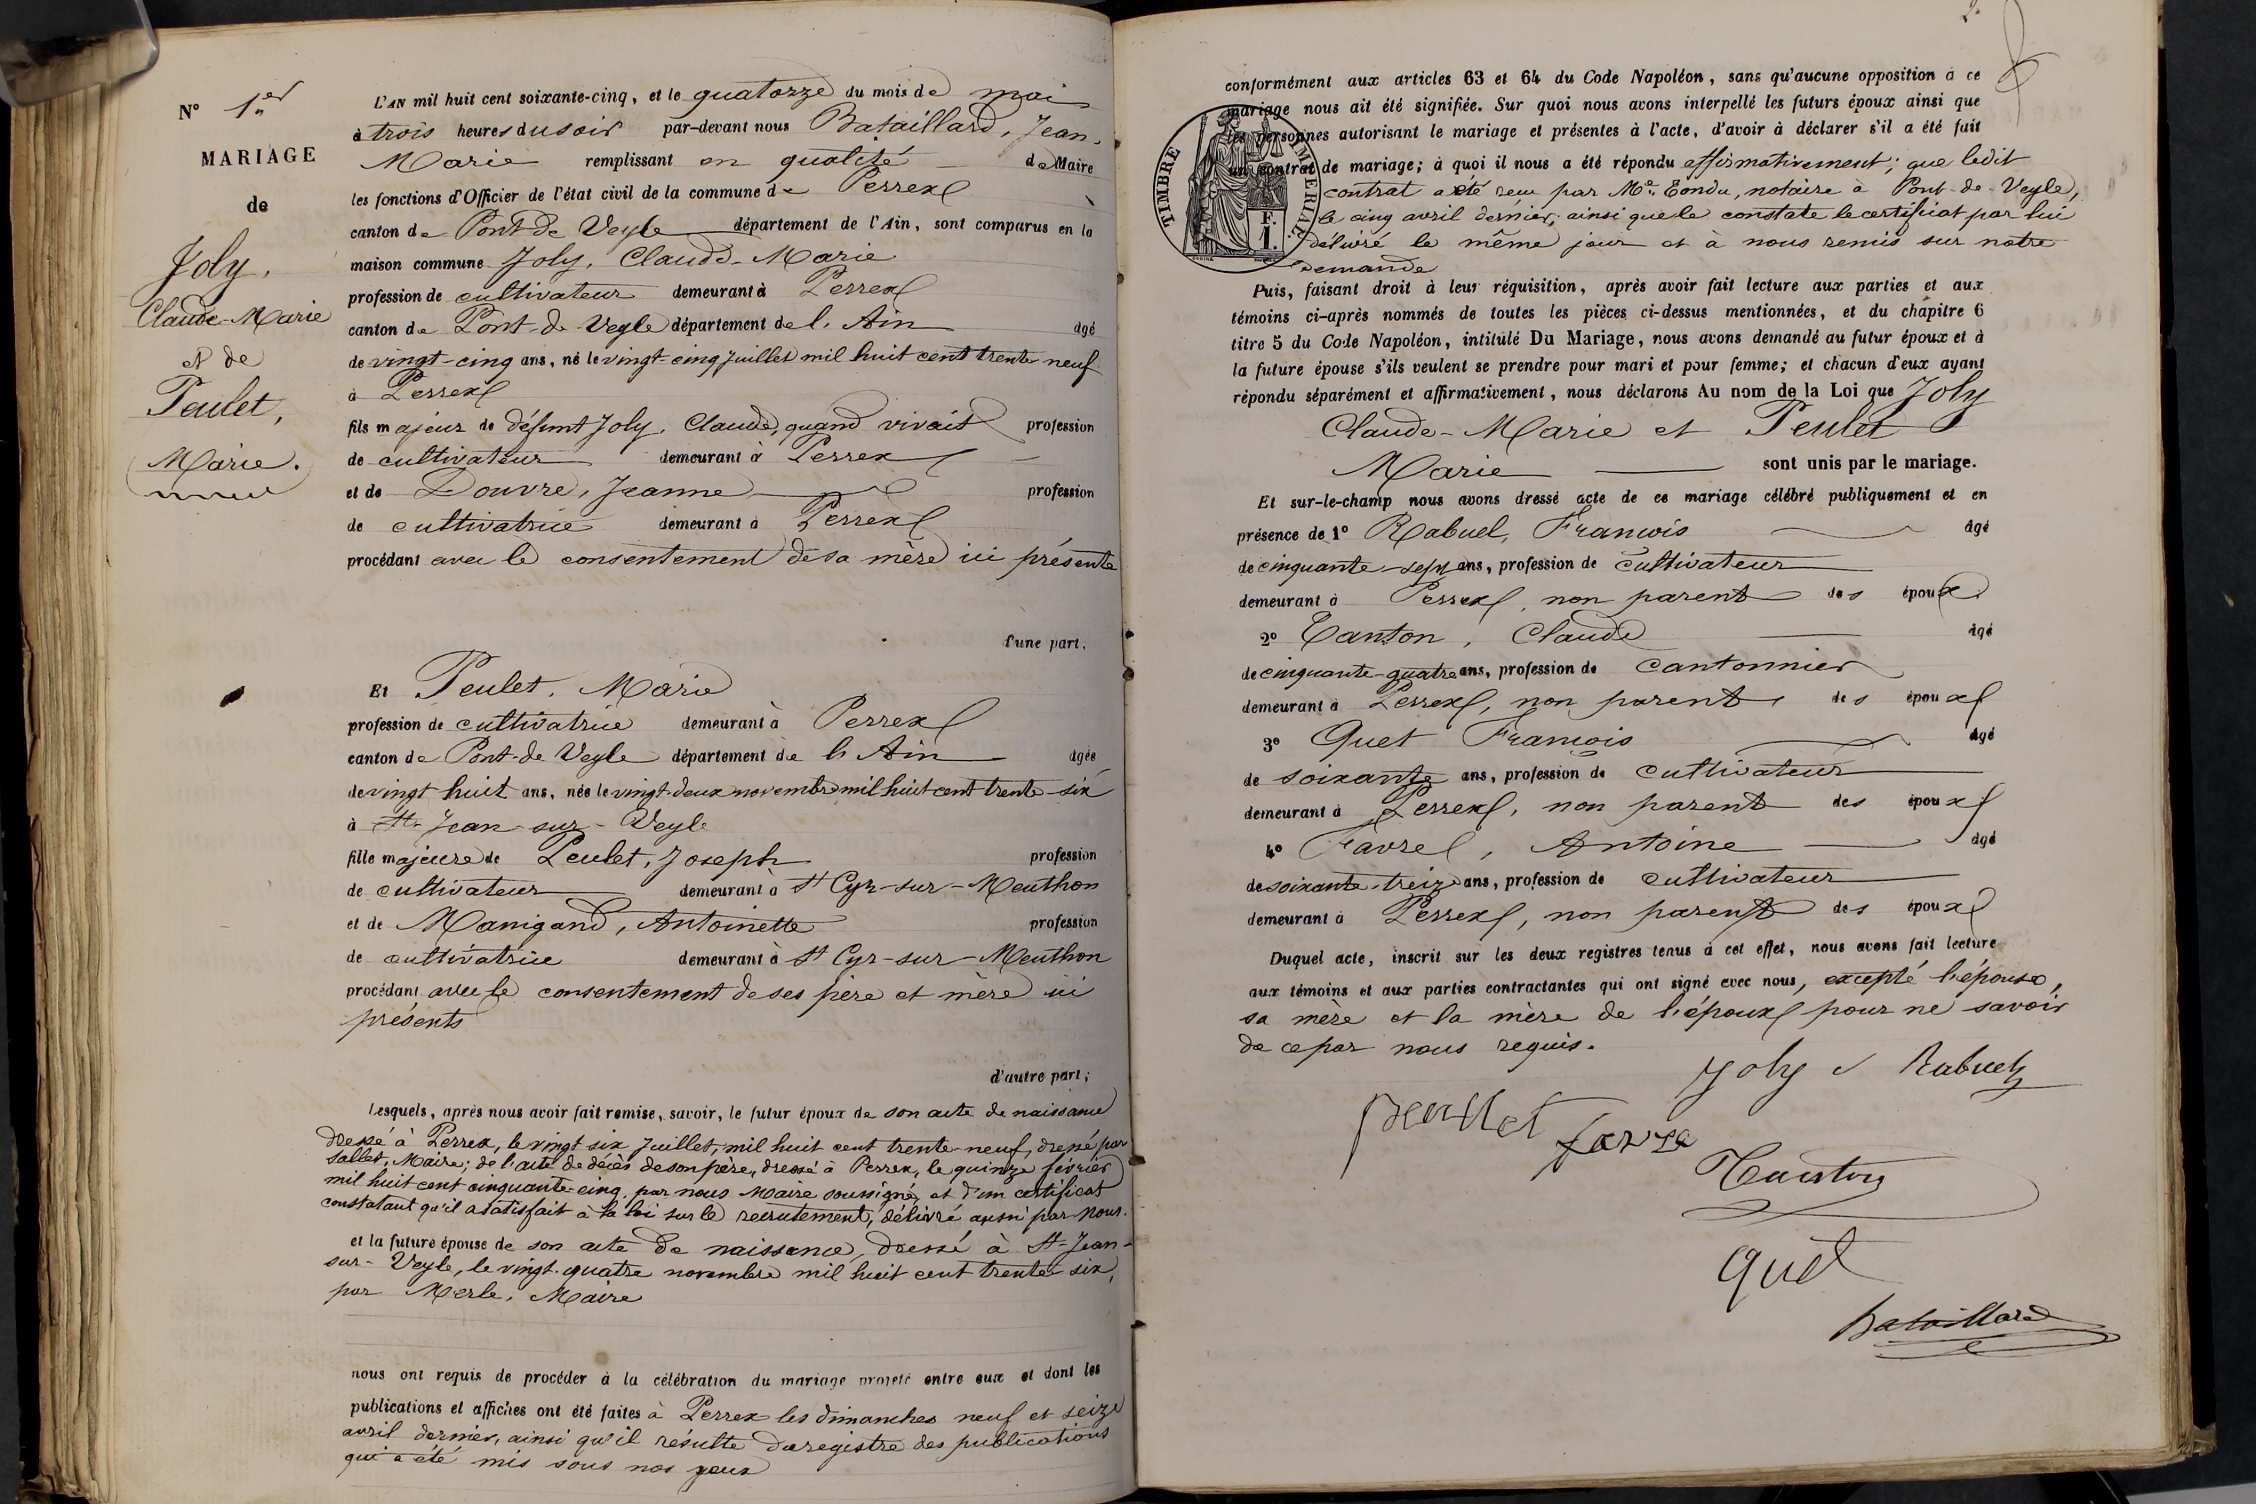 N° 1er
MARIAGE
de
Joly,
Claude-Marie
et de
Peulet,
Marie.
L'AN mil huit cent soixante-cinq, et le quatorze du mois de mai
à trois heures du soir par-devant nous Bataillard, Jean-
Marie remplissant en qualité de Maire
les fonctions d'Officier de l'état civil de la commune de Perrex
canton de Pont-de-Veyle département de l'Ain, sont comparus en la
maison commune Joly, Claude-Marie
profession de cultivateur demeurant à Perrex
canton de Pont-de-Veyle département de l'Ain âgé
de vingt-cinq ans, né le vingt-cinq juillet mil huit cent trente neuf
à Perrex
fils majeur de défunt Joly, Claude, quand vivait profession
de cultivateur demeurant à Perrex
et de Douvre, Jeanne profession
de cultivatrice demeurant à Perrex
procédant avec le consentement de sa mère ici présente
d'une part.
Et Peulet, Marie
profession de cultivatrice demeurant à Perrex
canton de Pont-de-Veyle département de l'Ain âgée
de vingt huit ans, née le vingt-deux novembre mil huit cent trente-six
à St-Jean-sur-Veyle
fille majeure de Peulet, Joseph profession
de cultivateur demeurant à St Cyr-sur-Menthon
et de Manigand, Antoinette profession
de cultivatrice demeurant à St Cyr-sur-Menthon
procédant avec le consentement de ses père et mère ici
présents
d'autre part;
Lesquels, après nous avoir fait remise, savoir, le futur époux de son acte de naissance
dressé à Perrex, le vingt six Juillet, mil huit cent trente-neuf, dressé par
Sallet, Maire; de l'acte de décès de son père, dressé à Perrex, le quinze février
mil huit cent cinquante-cinq, par nous Maire soussigné, et d'un certificat
constatant qu'il a satisfait à la loi sur le recrutement, délivré aussi par nous.
et la future épouse de son acte de naissance, dressé à St-Jean-
sur-Veyle, le vingt-quatre novembre mil huit cent trente-six,
par Merle, Maire
nous ont requis de procéder à la célébration du mariage projeté entre eux et dont les
publications et affiches ont été faites à Perrex les dimanches neuf et seize
avril dernier, ainsi qu'il résulte du registre des publications
qui a été mis sous nos yeux
2.
conformément aux articles 63 et 64 du Code Napoléon, sans qu'aucune opposition à ce
mariage nous ait été signifiée. Sur quoi nous avons interpellé les futurs époux ainsi que
les personnes autorisant le mariage et présentes à l'acte, d'avoir à déclarer s'il a été fait
un contrat de mariage; à quoi il nous a été répondu affirmativement; que ledit
contrat a été reçu par Me. Tondu, notaire à Pont-de-Veyle,
le cinq avril dernier, ainsi que le constate le certificat par lui
délivré le même jour et à nous remis sur notre
demande
TIMBRE IMPERIAL
F.
1.
Puis, faisant droit à leur réquisition, après avoir fait lecture aux parties et aux
témoins ci-après nommés de toutes les pièces ci-dessus mentionnées, et du chapitre 6
titre 5 du Code Napoléon, intitulé Du Mariage, nous avons demandé au futur époux et à
la future épouse s'ils veulent se prendre pour mari et pour femme; et chacun d'eux ayant
répondu séparément et affirmativement, nous déclarons Au nom de la Loi que Joly
Claude-Marie et Peulet
Marie sont unis par le mariage.
Et sur-le-champ nous avons dressé acte de ce mariage célébré publiquement et en
présence de 1° Rabuel, François âgé
de cinquante-sept ans, profession de cultivateur
demeurant à Perrex, non parent des époux
2° Tanton, Claude âgé
de cinquante-quatre ans, profession de cantonnier
demeurant à Perrex, non parent des époux
3° Quet François âgé
de soixante ans, profession de cultivateur
demeurant à Perrex, non parent des époux
4° Favre, Antoine âgé
de soixante-treize ans, profession de cultivateur
demeurant à Perrex, non parent des époux
Duquel acte, inscrit sur les deux registres tenus à cet effet, nous avons fait lecture
aux témoins et aux parties contractantes qui ont signé avec nous, excepté l'épouse,
sa mère et la mère de l'époux pour ne savoir
de ce par nous requis.
Joly Rabuel
peullet favre
Tanton
quet
Bataillard